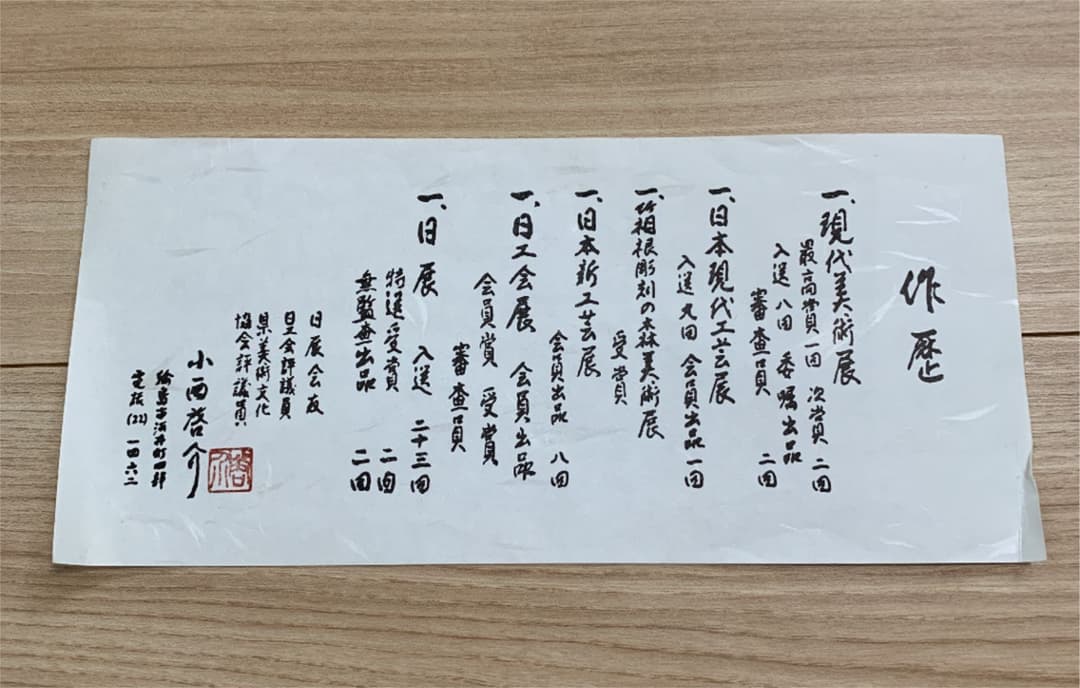 作歴
一、現代美術展
最高賞一回 次賞 二回
入選 八回 委嘱出品
審査員 二回
一、日本現代工芸展
入選 九回 会員出品 一回
一、箱根彫刻の森美術展
受賞
一、日本新工芸展
会員出品 八回
一、日工会展 会員出品
会員賞 受賞
審査員
一、日展 入選 二十三回
特選受賞 二回
無鑑査出品 二回
日展会友
日工会評議員
県美術文化
協会評議員
小西啓介
啓介
輪島市河井町四部
電話(22)一四六二